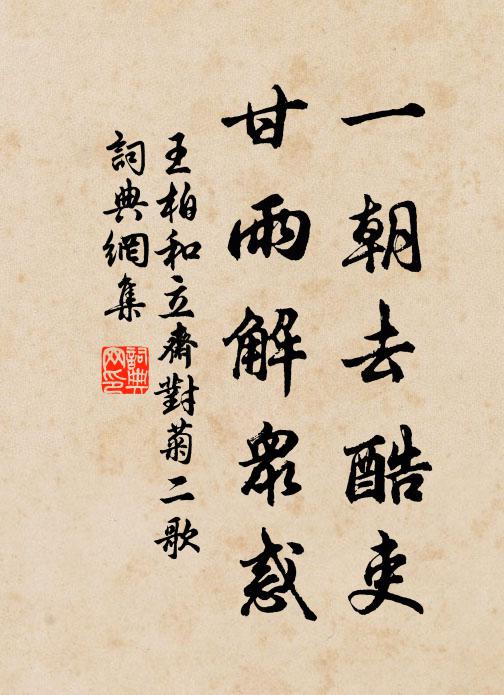 一朝去酷吏
甘雨解衆惑
王柏和立齋對菊二歌
詞典網集
詞典网印